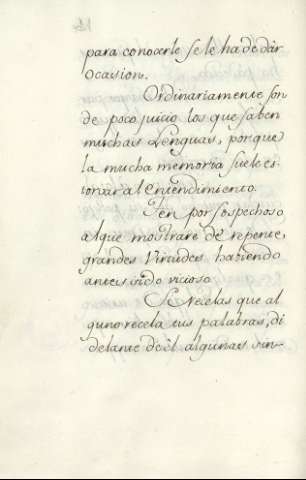 para conocerle se le ha de dar
Ocasion.
Ordinariamente son
de poco juicio los que saben
muchas Lenguas, porque
la mucha memoria suele es-
torvar al entendimiento.
Ten por sospechoso
al que mostrare de repente,
grandes Virtudes habiendo
antes sido vicioso
Si recelas que al
guno recela tus palabras, di
delante de él algunas sin-